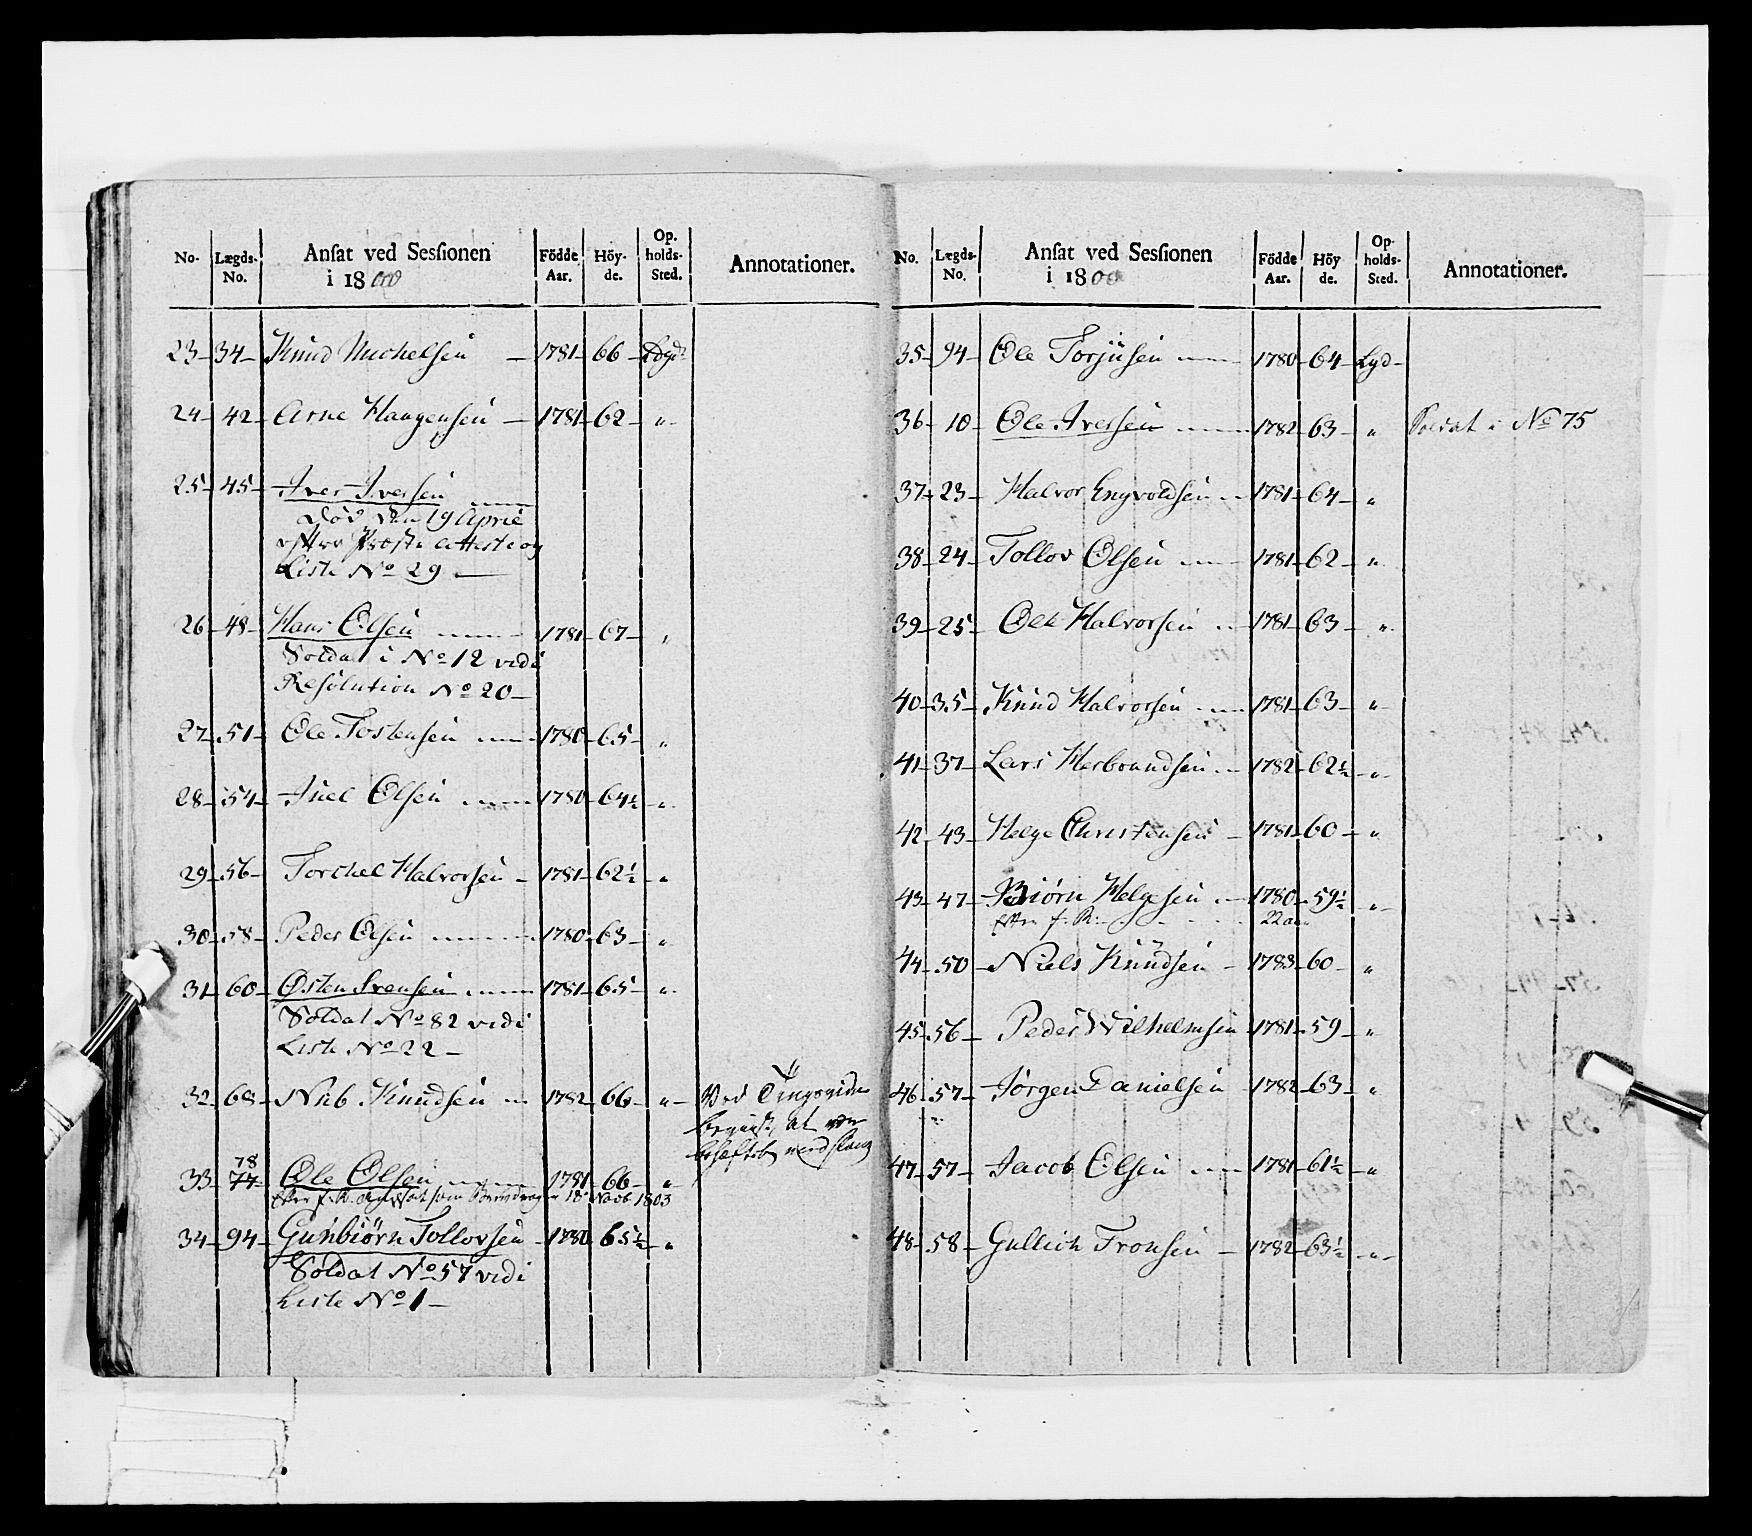 No. Lægds-No. Ansat ved Sessionen i 1800 Födde Aar. Höy-de. Op-holds-Sted. Annotationer.
23 – 34 – Knud Michelsen – 1781 – 66 –
24 – 42 – Arne Haagensen – 1781 – 62 – "
25 – 45 – Iver Iversen
Död den 19 April
efter Præste atteste og
Liste No 29 –
26 – 48 – Hans Olsen – 1781 – 67 – "
Soldat i No 12 vidi
Resolution No 20 –
27 – 51 – Ole Tostensen – 1780 – 65 – "
28 – 54 – Juel Olsen – 1780 – 64½ – "
29 – 56 – Torchel Halvorsen – 1781 – 62½ – "
30 – 58 – Peder Olsen – 1780 – 63 – "
31 – 60 – Østen Svensen – 1781 – 65 – "
Soldat No 82 vidi
Liste No 22 –
32 – 68 – Nub Knudsen – 1782 – 66 – " – Ved
78
33 – 77 – Ole Olsen – 1781 – 66 – "
Efter f. R. som 18 1803
34 – 94 – Gunbiørn Tollovsen – 1780 – 65½ – "
Soldat No 57 vidi
Liste No 1 –
No. Lægds-No. Ansat ved Sessionen i 1800 Födde Aar. Höy de. Op-holds-Sted. Annotationer.
35 – 94 – Ole Torjusen – 1780 – 64 – Lgd –
36 – 10 – Ole Iversen – 1782 – 63 – " Soldat i No 75
37 – 23 – Halvor Engvoldsen – 1781 – 64 – "
38 – 24 – Tollov Olsen – 1781 – 62 – "
39 – 25 – Ole Halvorsen – 1781 – 63 – "
40 – 35 – Knud Halvorsen – 1781 – 63 – "
41 – 37 – Lars Herbrandsen – 1782 – 62½ – "
42 – 43 – Helge Christensen – 1781 – 60 – "
43 – 47 – Biørn Helgesen – 1780 – 59½ – "
Efter f. R. – 22 aar
44 – 50 – Niels Knudsen – 1783 – 60 – "
45 – 56 – Peder Wilhelmsen – 1781 – 59 – "
46 – 57 – Jørgen Danielsen – 1782 – 63 – "
47 – 57 – Jacob Olsen – 1781 – 61½ – "
48 – 58 – Gullich Tronsen – 1782 – 63½ – "